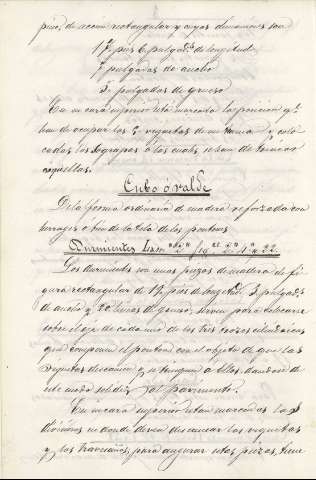 pino, de accion rectangular y cuyas dimensiones son
1 p. pies 6 pulgadas de longitud
7 pulgadas de ancho
3 pulgadas de grueso
En su cara superior está marcada la posicion qe
han de ocupar las 5 viguetas de su tramo y colo-
cadas las grapas á las cuales se han de trincar
aquellas.
Cubo ó valde
De la forma ordinaria de madera reforzada con
herrages ó bien de la tela de los pontones
Durmientes Lám. 2ª figs 2ª 4ª y 22.
Los durmientes son unas piezas de madera de fi-
gura rectangular de 19 pies de longitud 3 pulgadas
de ancho y 20 lineas de grueso; sirven para colocarse
sobre el eje de cada uno de los tres trozos cilindricos
que componen el ponton con el objeto de que las
viguetas descansen y se trinquen á ellos, dandose de
este modo solidez al pavimento.
En su cara superior están marcadas las
divisiones en donde deben descansar las viguetas
y los travesaños, para asegurar estas piezas, tiene